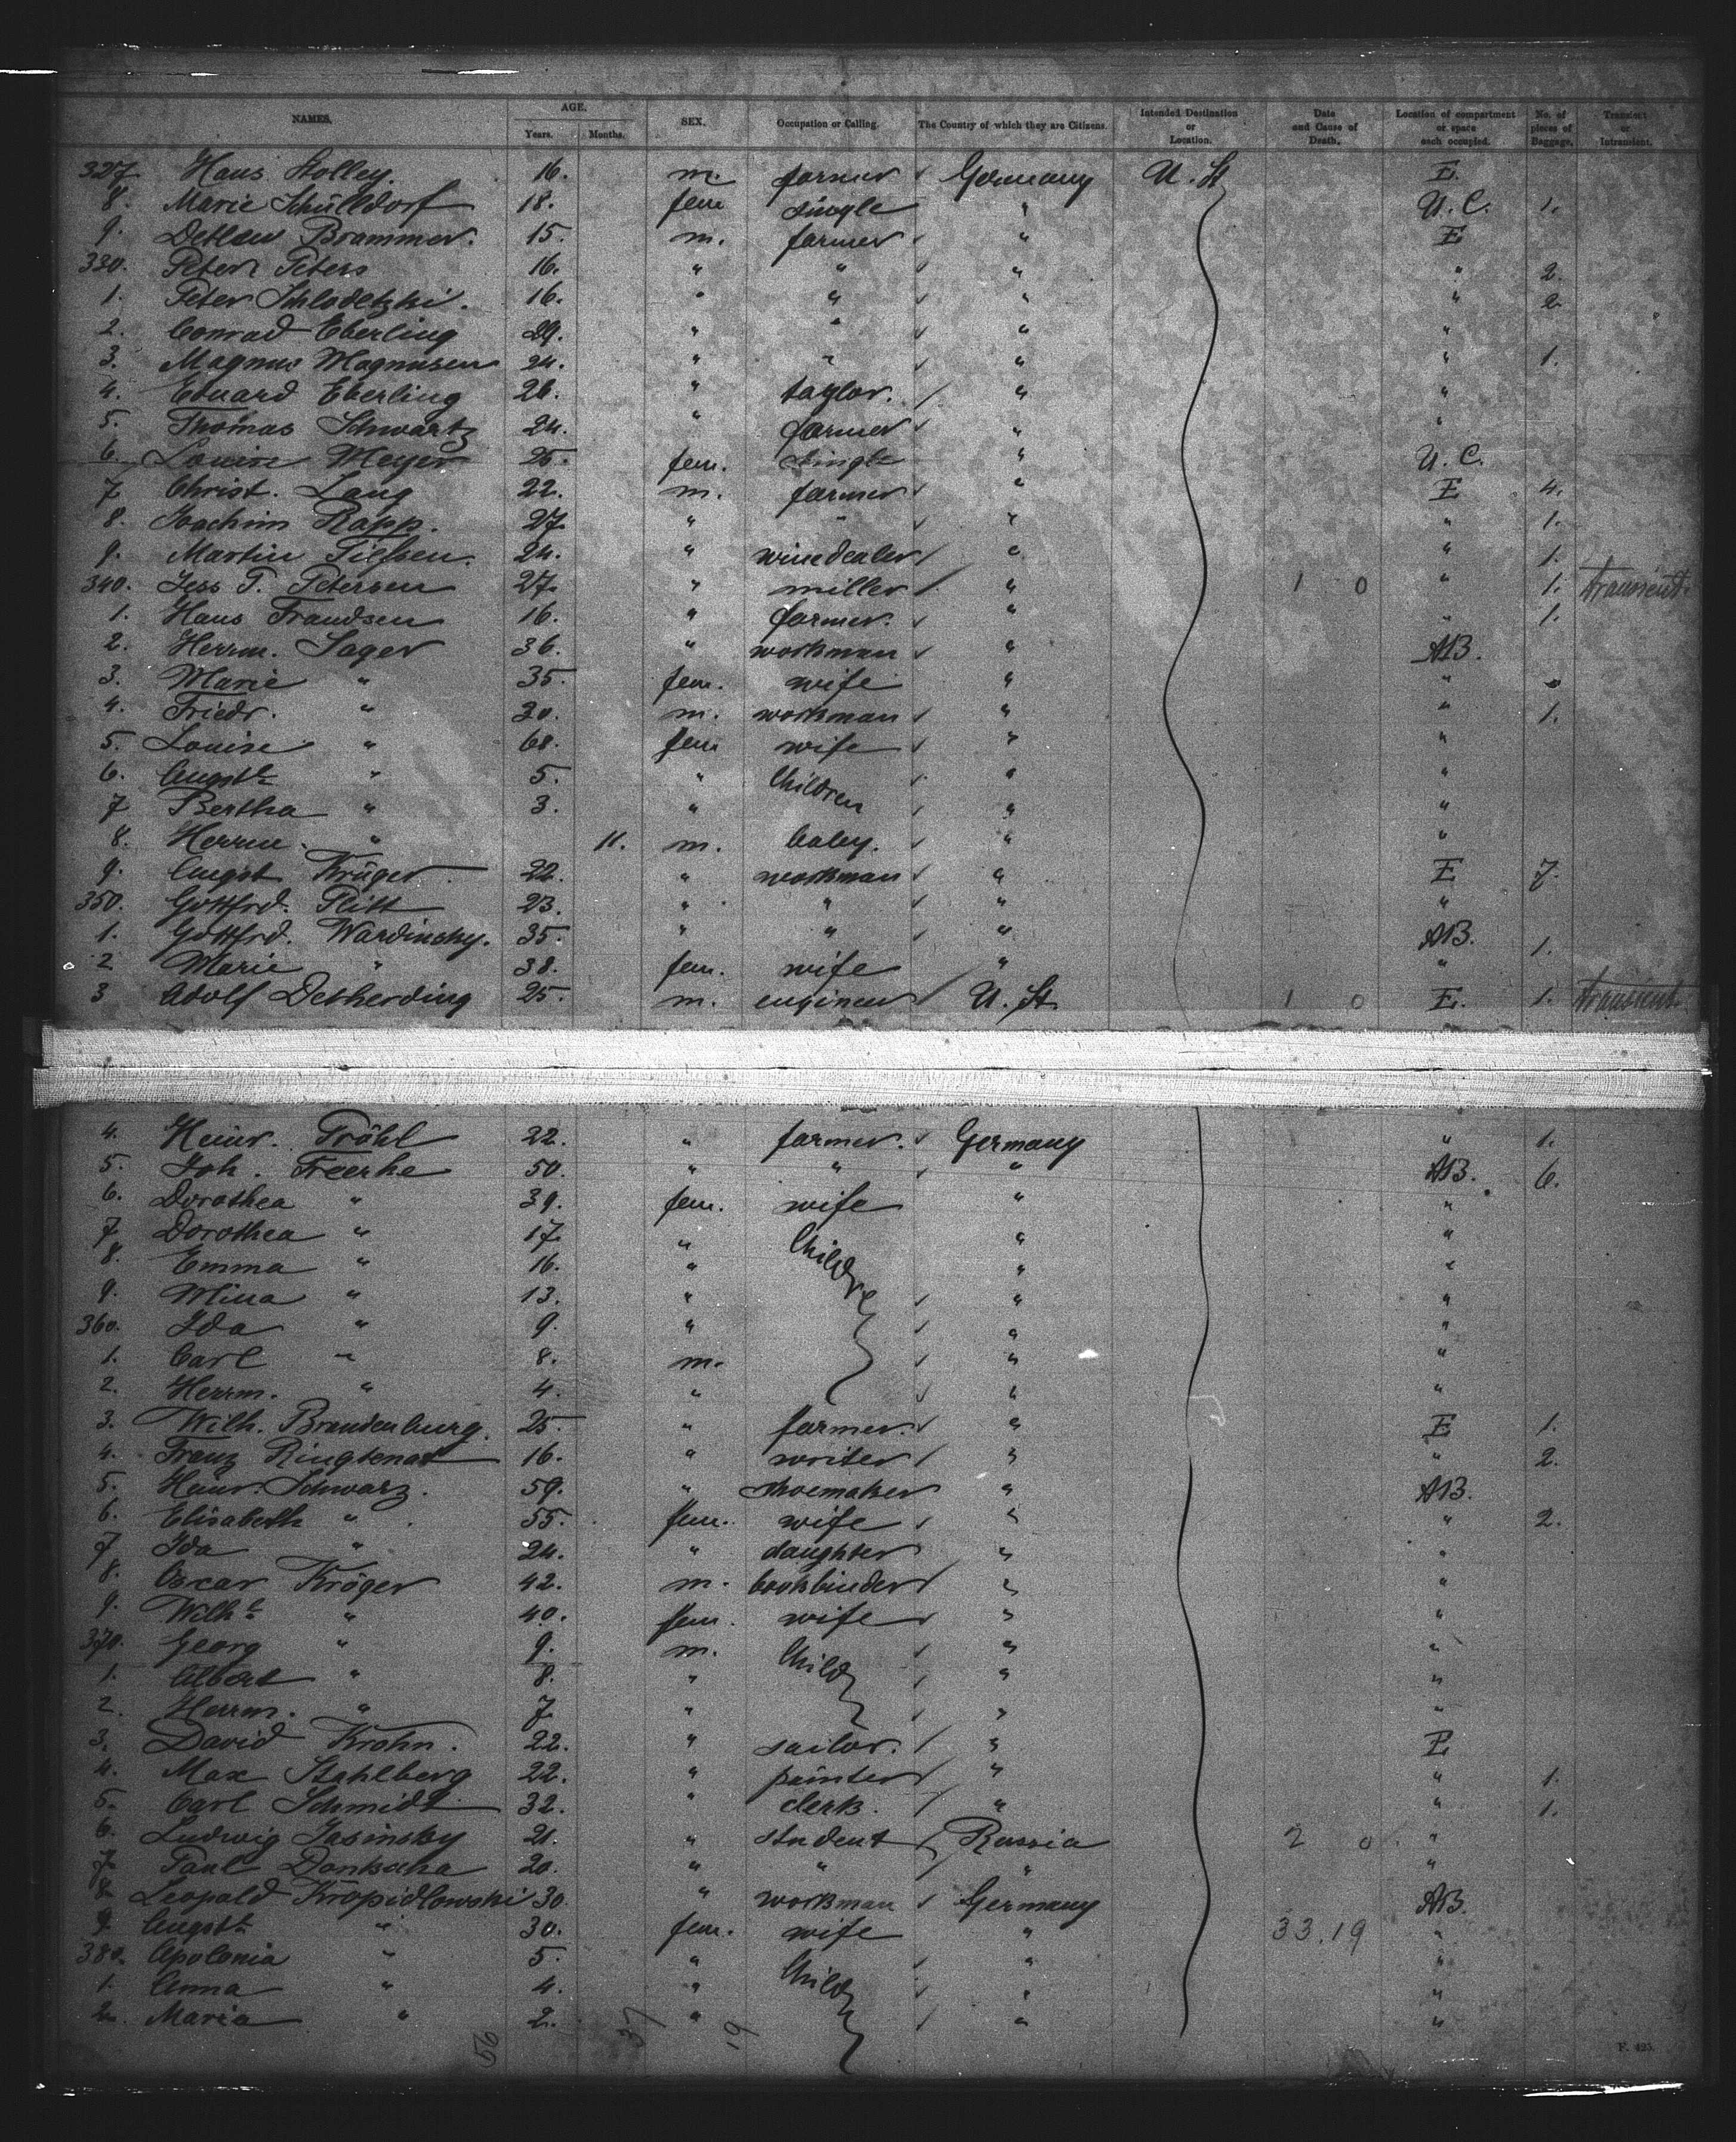 NAMES. AGE. Years. Months. SEX. Occupation or Calling. The Country of which they are Citizens. Intended Destination or Location. Date and Cause of Death. Location of compartment or space each occupied. No. of pieces of Baggage. Transient or Intransient.
327 Hans Stolley. 16. m. farmer Germany U. St E.
8. Marie Schülldorf 18. fem single " U. C. 1.
9. Detlew Brammer. 15. m. farmer " E
330. Peter Peters 16. " " " " 2.
1. Peter Schladetzki. 16. " " " " 2
2. Conrad Eberling 29. " " " "
3. Magnus Magnusen 24. " " " " 1.
4. Eduard Eberling 26. " taylor. " "
5. Thomas Schwartz 24. " farmer " "
6. Louise Meyer 25. fem. single " U. C.
7 Christ. Lang 22. m. farmer " E 4.
8. Joachim Rapp. 27 " " " " 1.
9. Martin Tiessen. 24. " winedealer " " 1.
340. Jess P. Petersen 27. " miller " 1 0 " 1. transient.
1. Hans Frandsen 16. " farmer. " " 1.
2. Herrm. Sager 36. " workman " AB.
3. Marie " 35. fem. wife " "
4. Friedr. " 30. m. workman " " 1.
5. Louise " 68. fem wife " "
6. Augste " 5. " Children " "
7 Bertha " 3. " " "
8. Herrm. " 11. m. baby. " "
9. Augst Krüger 22. " workman " E 7.
350. Gottfrd. Plitt 23. " " " "
1. Gottfrd. Wardinsky. 35. " " " AB. 1.
2 Marie " 38. fem. wife " "
3 Adolf Detherding 25. m. engineer U. St 1 0 E. 1. transient
4. Heinr. Pröhl 22. " farmer. Germany " 1.
5. Joh. Freerke 50. " " " AB. 6.
6. Dorothea " 39. fem. wife " "
7 Dorothea " 17. " Children " "
8. Emma " 16. " " "
9. Mina " 13. " " "
360. Ida " 9. " " "
1. Carl " 8. m. " "
2. Herrm. " 4. " " "
3. Wilh. Brandenburg. 25 " farmer. " E 1.
4. Franz 16. " writer " " 2.
5. Heinr. Schwarz. 59. " shoemaker " AB.
6. Elisabeth " 55. fem. wife " " 2.
7 Ida " 24. " daughter " "
8. Oscar Kröger 42. m. bookbinder " "
9. Wilhe " 40. fem. wife " "
370. Georg " 9. m. Child " "
1. Albert " 8. " " "
2. Herrm. " 7. " " "
3. David Krohn. 22. " sailor. " E
4. Max Stahlberg 22. " painter " " 1.
5. Carl Schmidt 32. " clerk. " " 1.
6. Ludwig Jasinsky 21. " student Russia 2 0 "
7. Paul 20. " " " "
8. Leopold Kropidlowski 30 " workman Germany AB.
9. Augste " 30. fem. wife " 33.19 "
380. Apolonia " 5. " Child " "
1. Anna " 4. " " "
2. Maria " 2. " " "
56 37 19
F. 425.